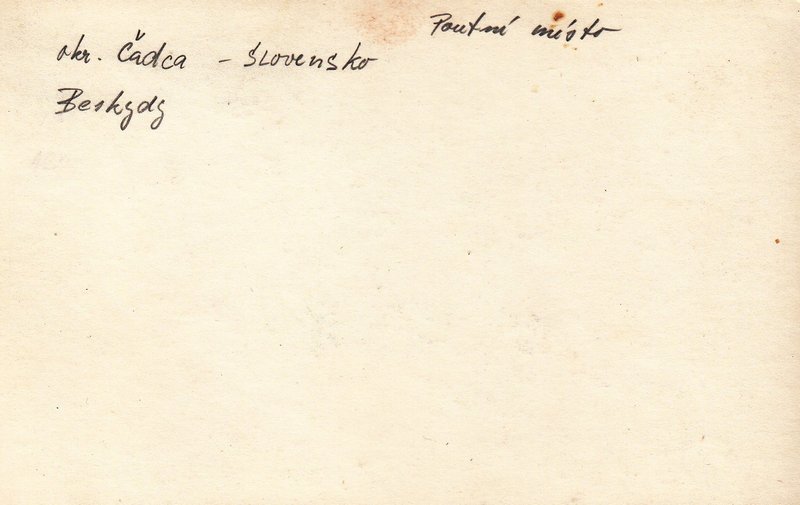 Poutní místo
okr. Čadca - Slovensko
Beskydy